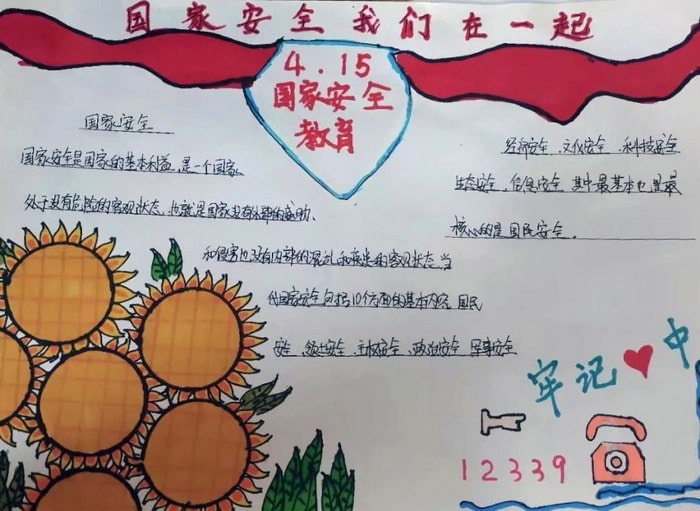 国家安全我们在一起
4.15
国家安全
教育
国家安全
国家安全是国家的基本利益,是一个国家
处于没有危险的客观状态,也就是国家没有外部的威胁、
和侵害也没有内部的混乱和疾患的客观状态,当
代国家安全包括10个方面的基本内容,国民
安全、领土安全、主权安全、政治安全 军事安全
经济安全、文化安全、科技安全
生态安全、信息安全,其中最基本也是最
核心的是国民安全。
牢记 中
12339